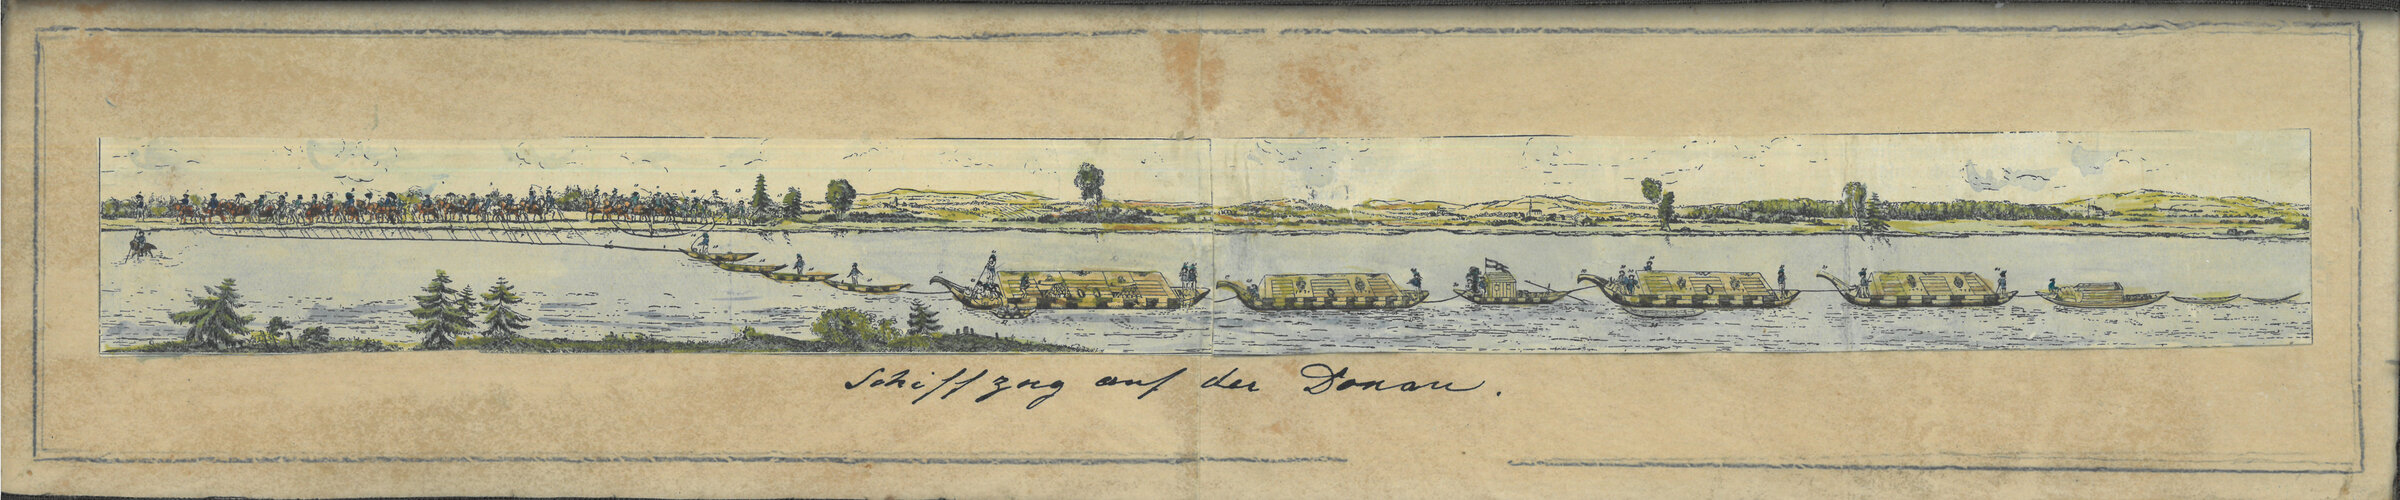 Schiffzug auf der Donau.